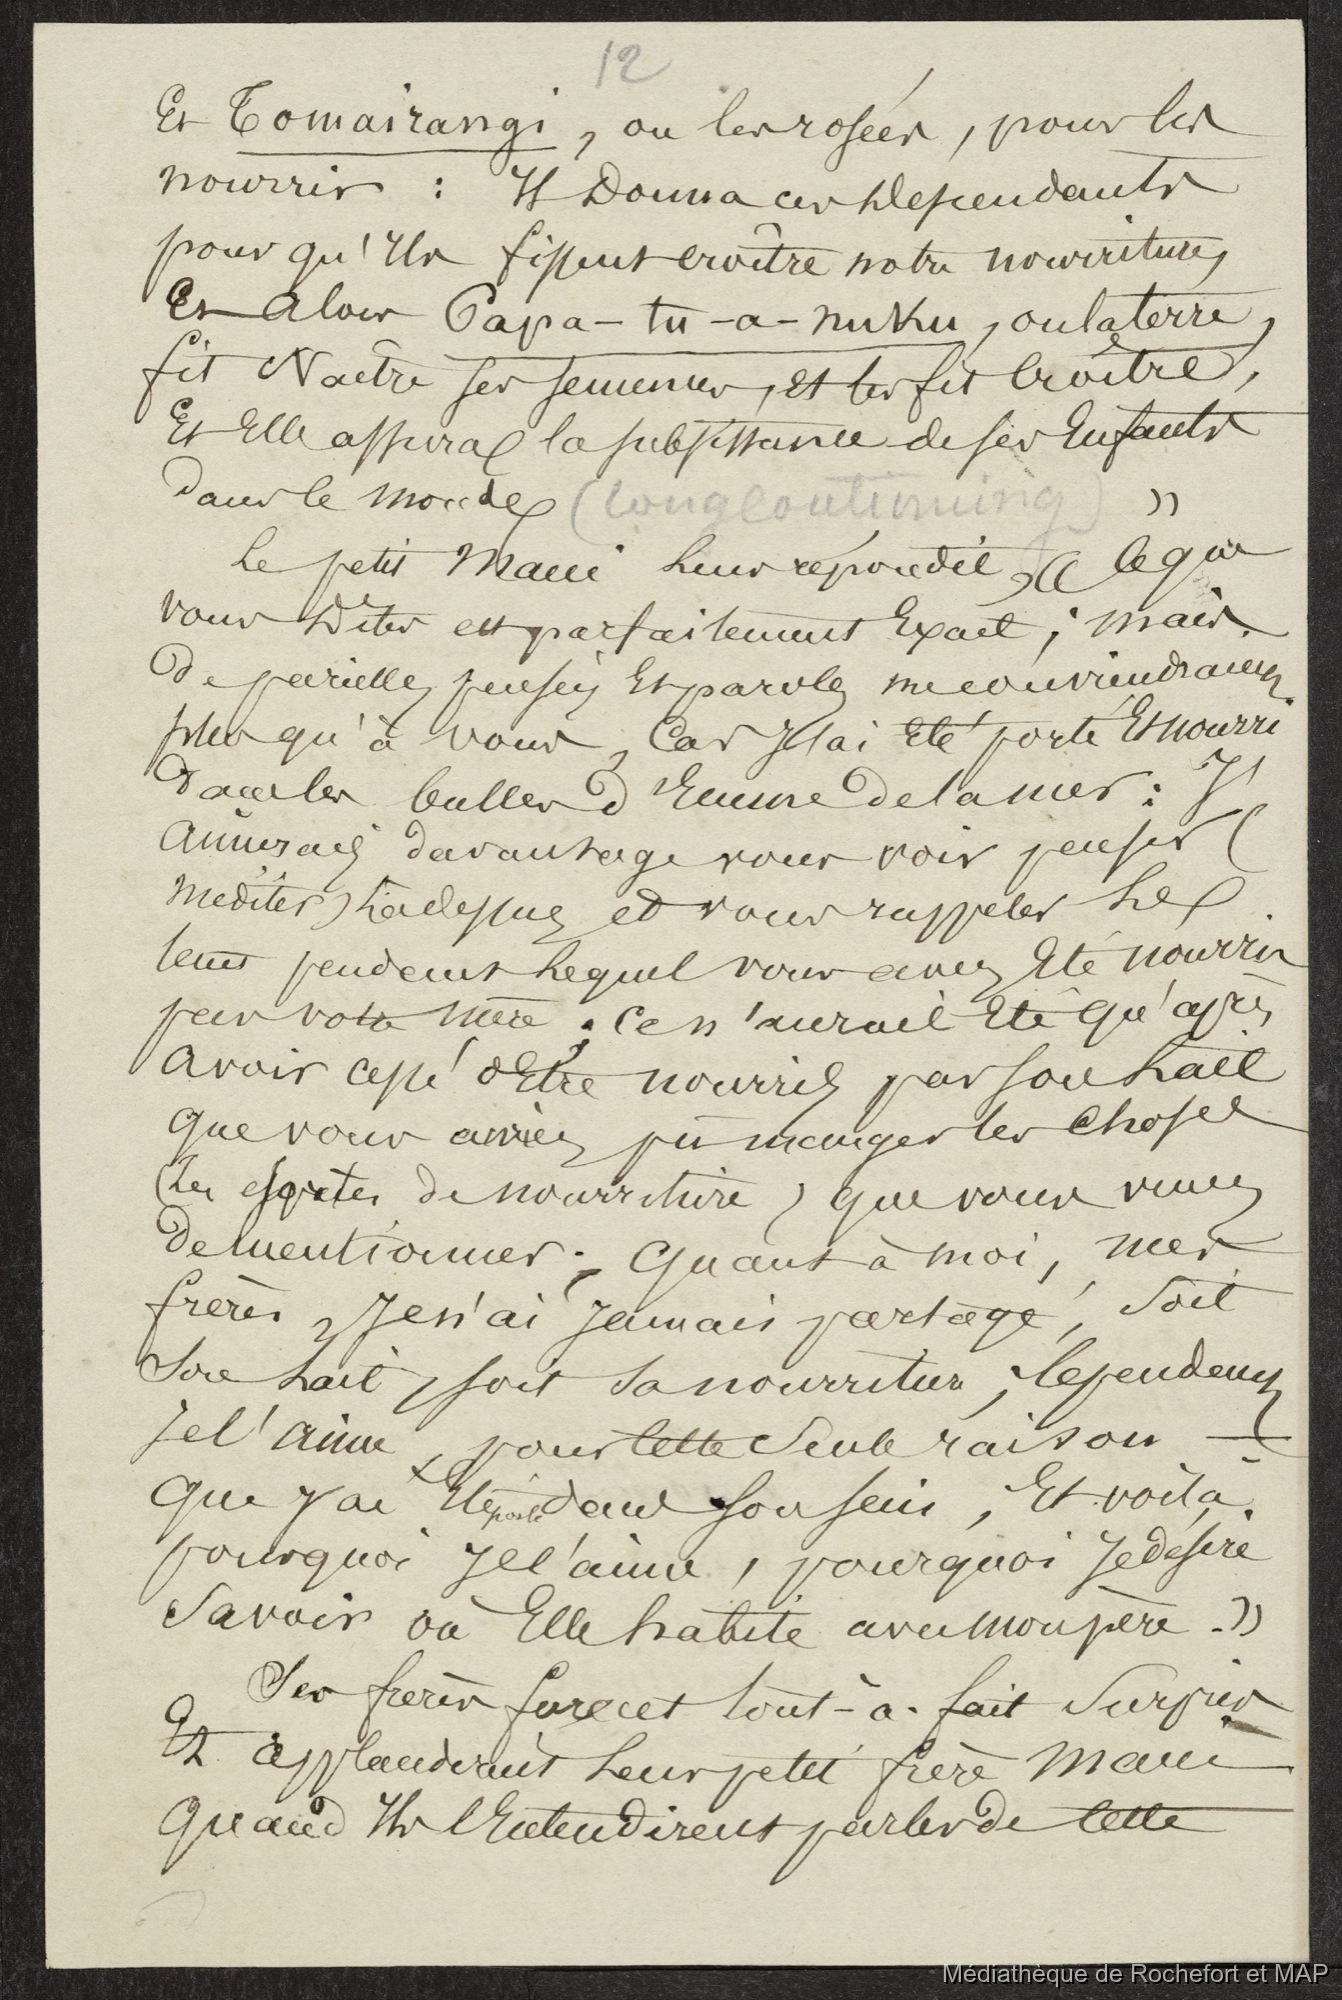 12
Et Tomairangi, ou les rosées, pour les
nourrir : Il Donna ces Descendants
pour qu'Ils fissent croître notre nourriture,
Et Alors Papa-tu-a-nuku, ou la terre,
fit Naître ses semences, Et les fit Croître,
Et Elle assura la subsistance de ses Enfants
dans le monde (longcontinuing) »
Le petit Maui leur répondit, « Ce que
vous Dites est parfaitement Exact ; mais
De pareilles pensées Et paroles me conviendraient
plus qu'à vous, Car J'ai Eté porté Et nourri
dans les bulles d'Ecume de la mer : J'
Aimerais davantage vous voir penser (
méditer) là dessus et vous rappeler Le
tems pendant Lequel vous avez Eté nourris
par votre mère ; Ce n'aurait Eté Qu'après
Avoir cessé d'Etre nourris par son Lait
Que vous auriez pû manger les Choses
(les espèces de nourriture) Que vous venez
De mentionner ; Quant à moi, mes
frères, Je n'ai Jamais partagé, Soit
Son Lait, soit Sa nourriture ; Cependant
Je l'Aime, pour Cette Seule raison —
Que J'ai Eté porté dans son sein ; Et voilà
pourquoi Je l'aime, pourquoi Je désire
Savoir où Elle habite avec mon père. »
Ses frères furent tout-à-fait Surpris
Et applaudirent Leur petit frère Maui
Quand Ils l'Entendirent parler de Cette
Médiathèque de Rochefort et MAP